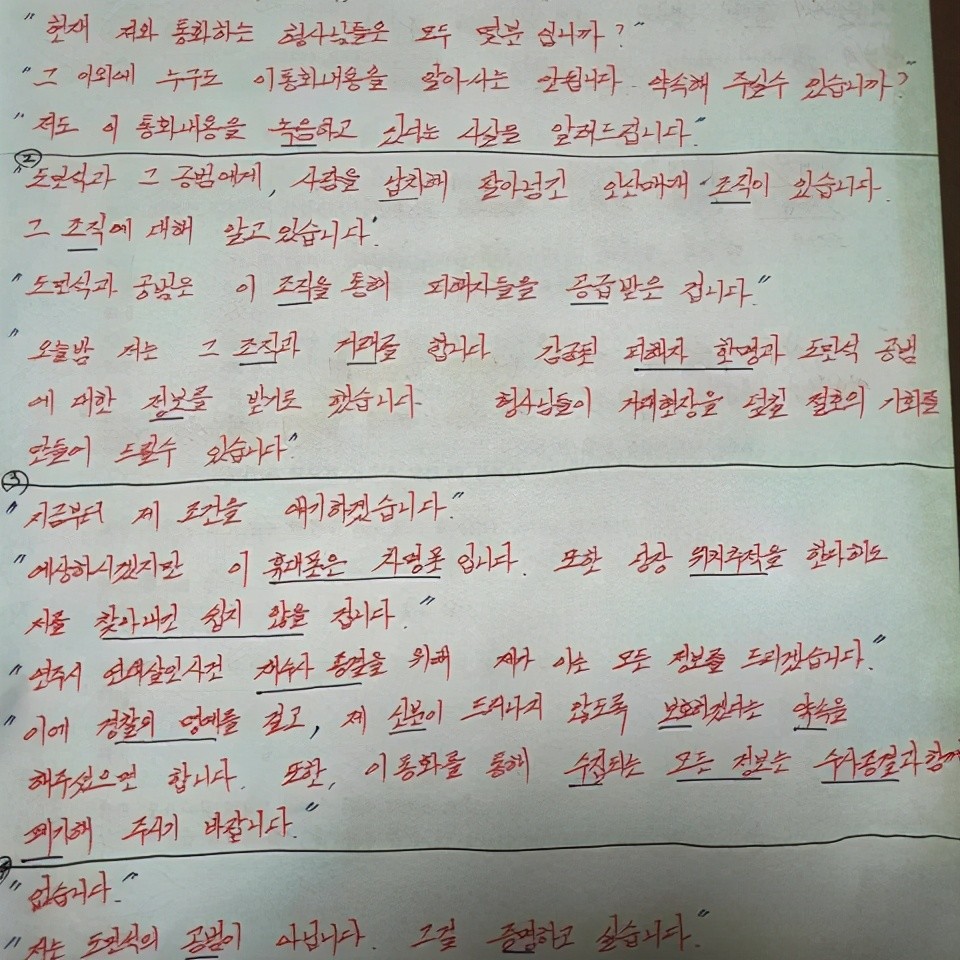 "현재 저와 통화하는 형사님들은 모두 몇분 입니까?"
"그 이외에 누구도 이통화내용을 알아서는 안됩니다. 약속해 주실수 있습니까?"
"저도 이 통화내용을 녹음하고 있다는 사실을 알려드립니다."
②
"도민식과 그 공범에게, 사람을 납치해 팔아넘긴 인신매매 조직이 있습니다.
그 조직에 대해 알고있습니다."
"도민식과 공범은 이 조직을 통해 피해자들을 공급받은 겁니다."
"오늘밤 저는 그 조직과 거래를 합니다. 감금된 피해자 한명과 도민식 공범
에 대한 정보를 받기로 했습니다. 형사님들이 거래현장을 덮칠 절호의 기회를
만들어 드릴수 있습니다"
③
"지금부터 제 조건을 얘기하겠습니다."
"예상하시겠지만 이 휴대폰은 차명폰입니다. 또한 당장 위치추적을 한다해도
저를 찾아내긴 쉽지 않을 겁니다."
"연주시 연쇄살인사건 재수사 종결을 위해 제가 아는 모든 정보를 드리겠습니다."
"이에 경찰의 명예를 걸고, 제 신분이 드러나지 않도록 보호하겠다는 약속을
해주셨으면 합니다. 또한, 이통화를 통해 수집되는 모든 정보는 수사종결과 함께
폐기해 주시기 바랍니다."
"없습니다."
"저는 도민식의 공범이 아닙니다. 그걸 증명하고 싶습니다."